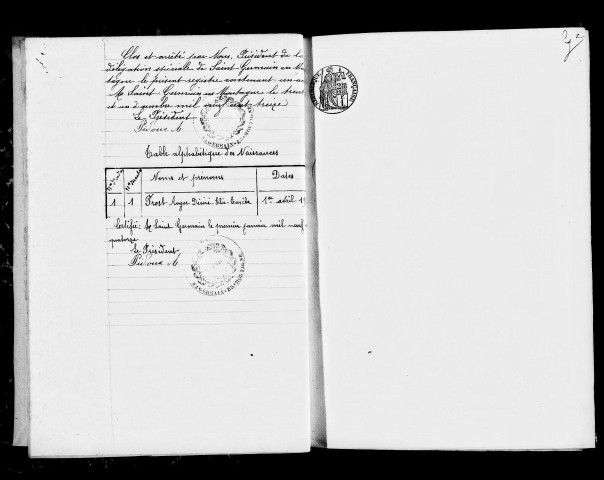 Clos et arrêté par Nous, Président de la
délégation spéciale de Saint Germain en Mon
tagne le présent registre contenant un ac
A Saint Germain en Montagne le trent
et un décembre mil neuf cent treize
Le Président
Table alphabétique des Naissances
Noms et prénoms Dates
1 1 Prost Roger 1er avril 19
Certifié: A Saint Germain le premier janvier mil neuf
quatorze
Le Président